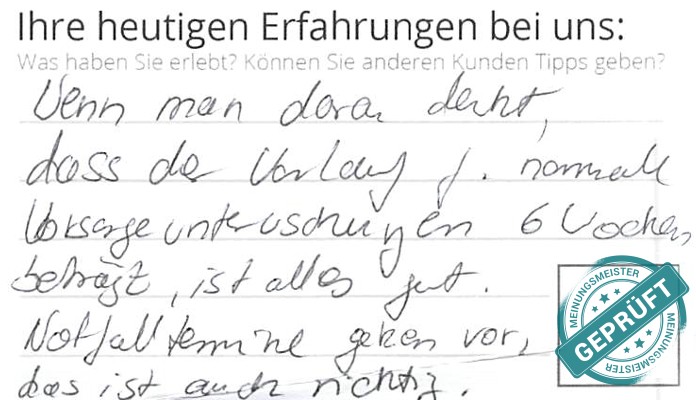 Ihre heutigen Erfahrungen bei uns:
Was haben Sie erlebt? Können Sie anderen Kunden Tipps geben?
Wenn man daran denkt,
dass der Vorlauf f. normale
Vorsorgeuntersuchungen 6 Wochen
beträgt, ist alles gut.
Notfalltermine gehen vor,
das ist auch richtig.
MEINUNGSMEISTER
GEPRÜFT
MEINUNGSMEISTER